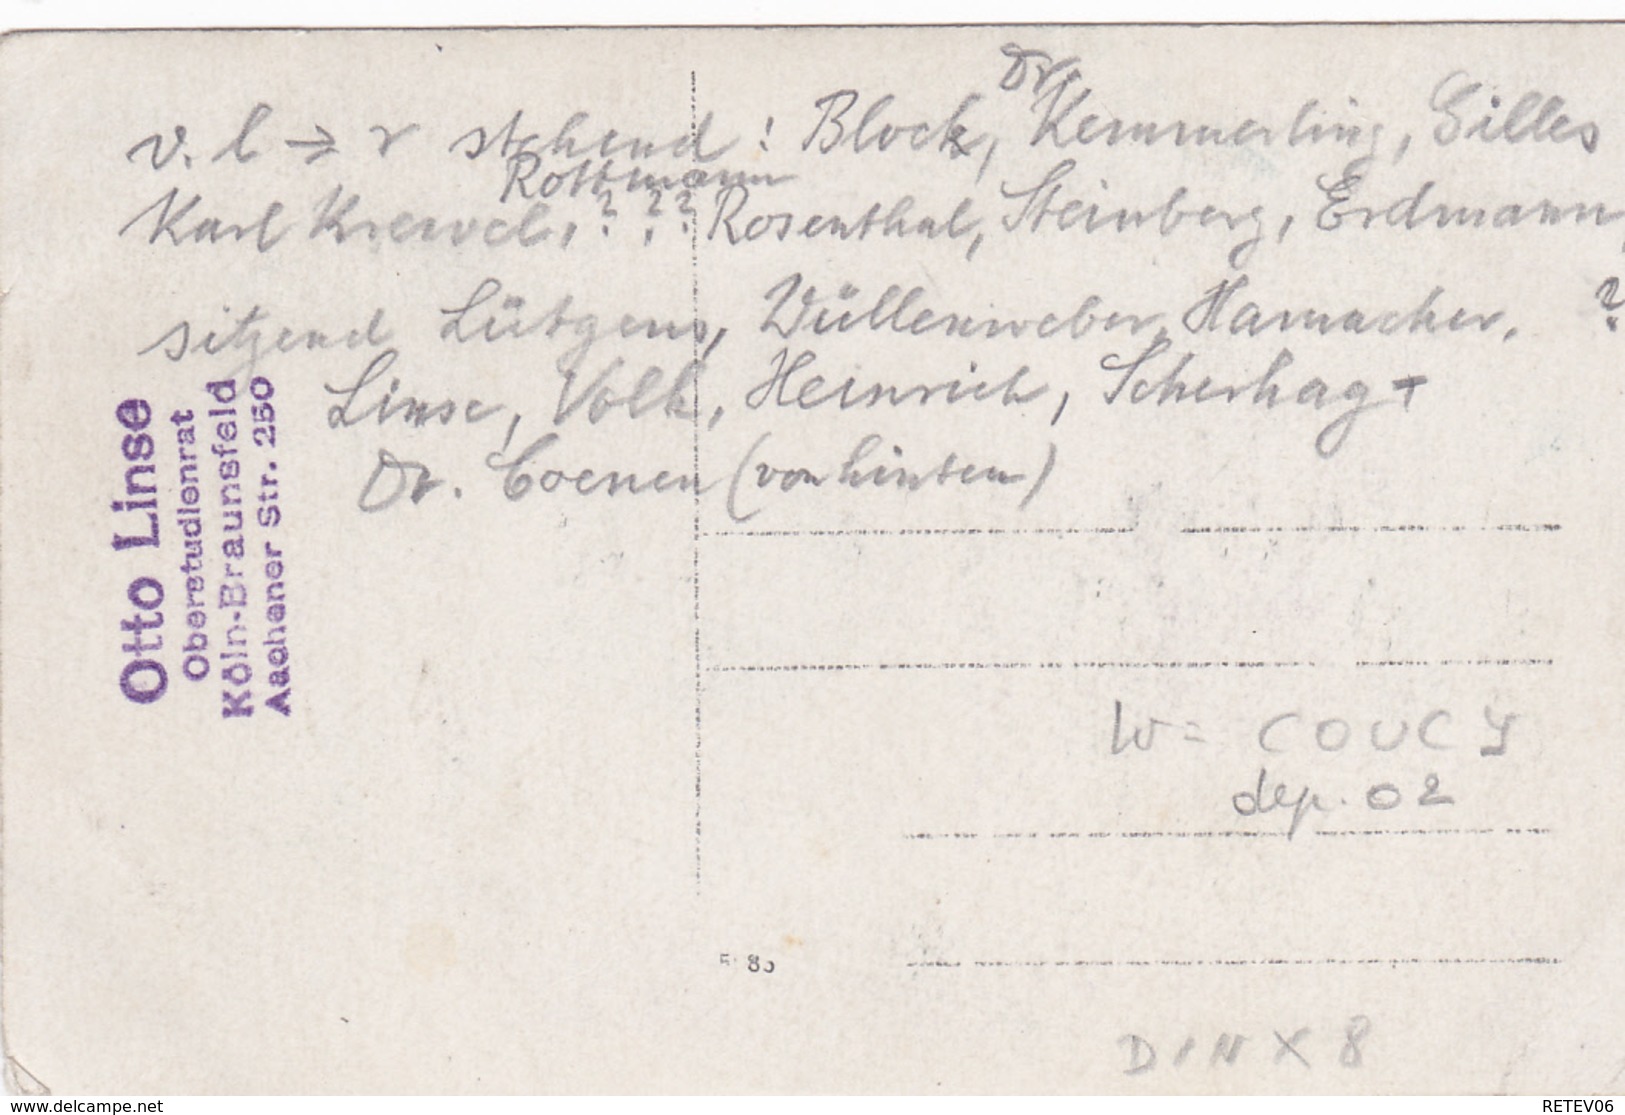 Dr.
v. l → r stehend: Block, Kemmerling, Gilles
Rottmann
Karl Krewel, ? ? ? Rosenthal, Steinberg, Erdmann,
sitzend Lütgens, Wüllenweber, Hamacher, ?
Linse, Volk, Heinrich, Scherhag +
Dr. Coenen (von hinten)
Otto Linse
Oberstudienrat
Köln-Braunsfeld
Aachener Str. 250
W= COUCY
dep. 02
DIN X 8
delcampe.net
RETEV06